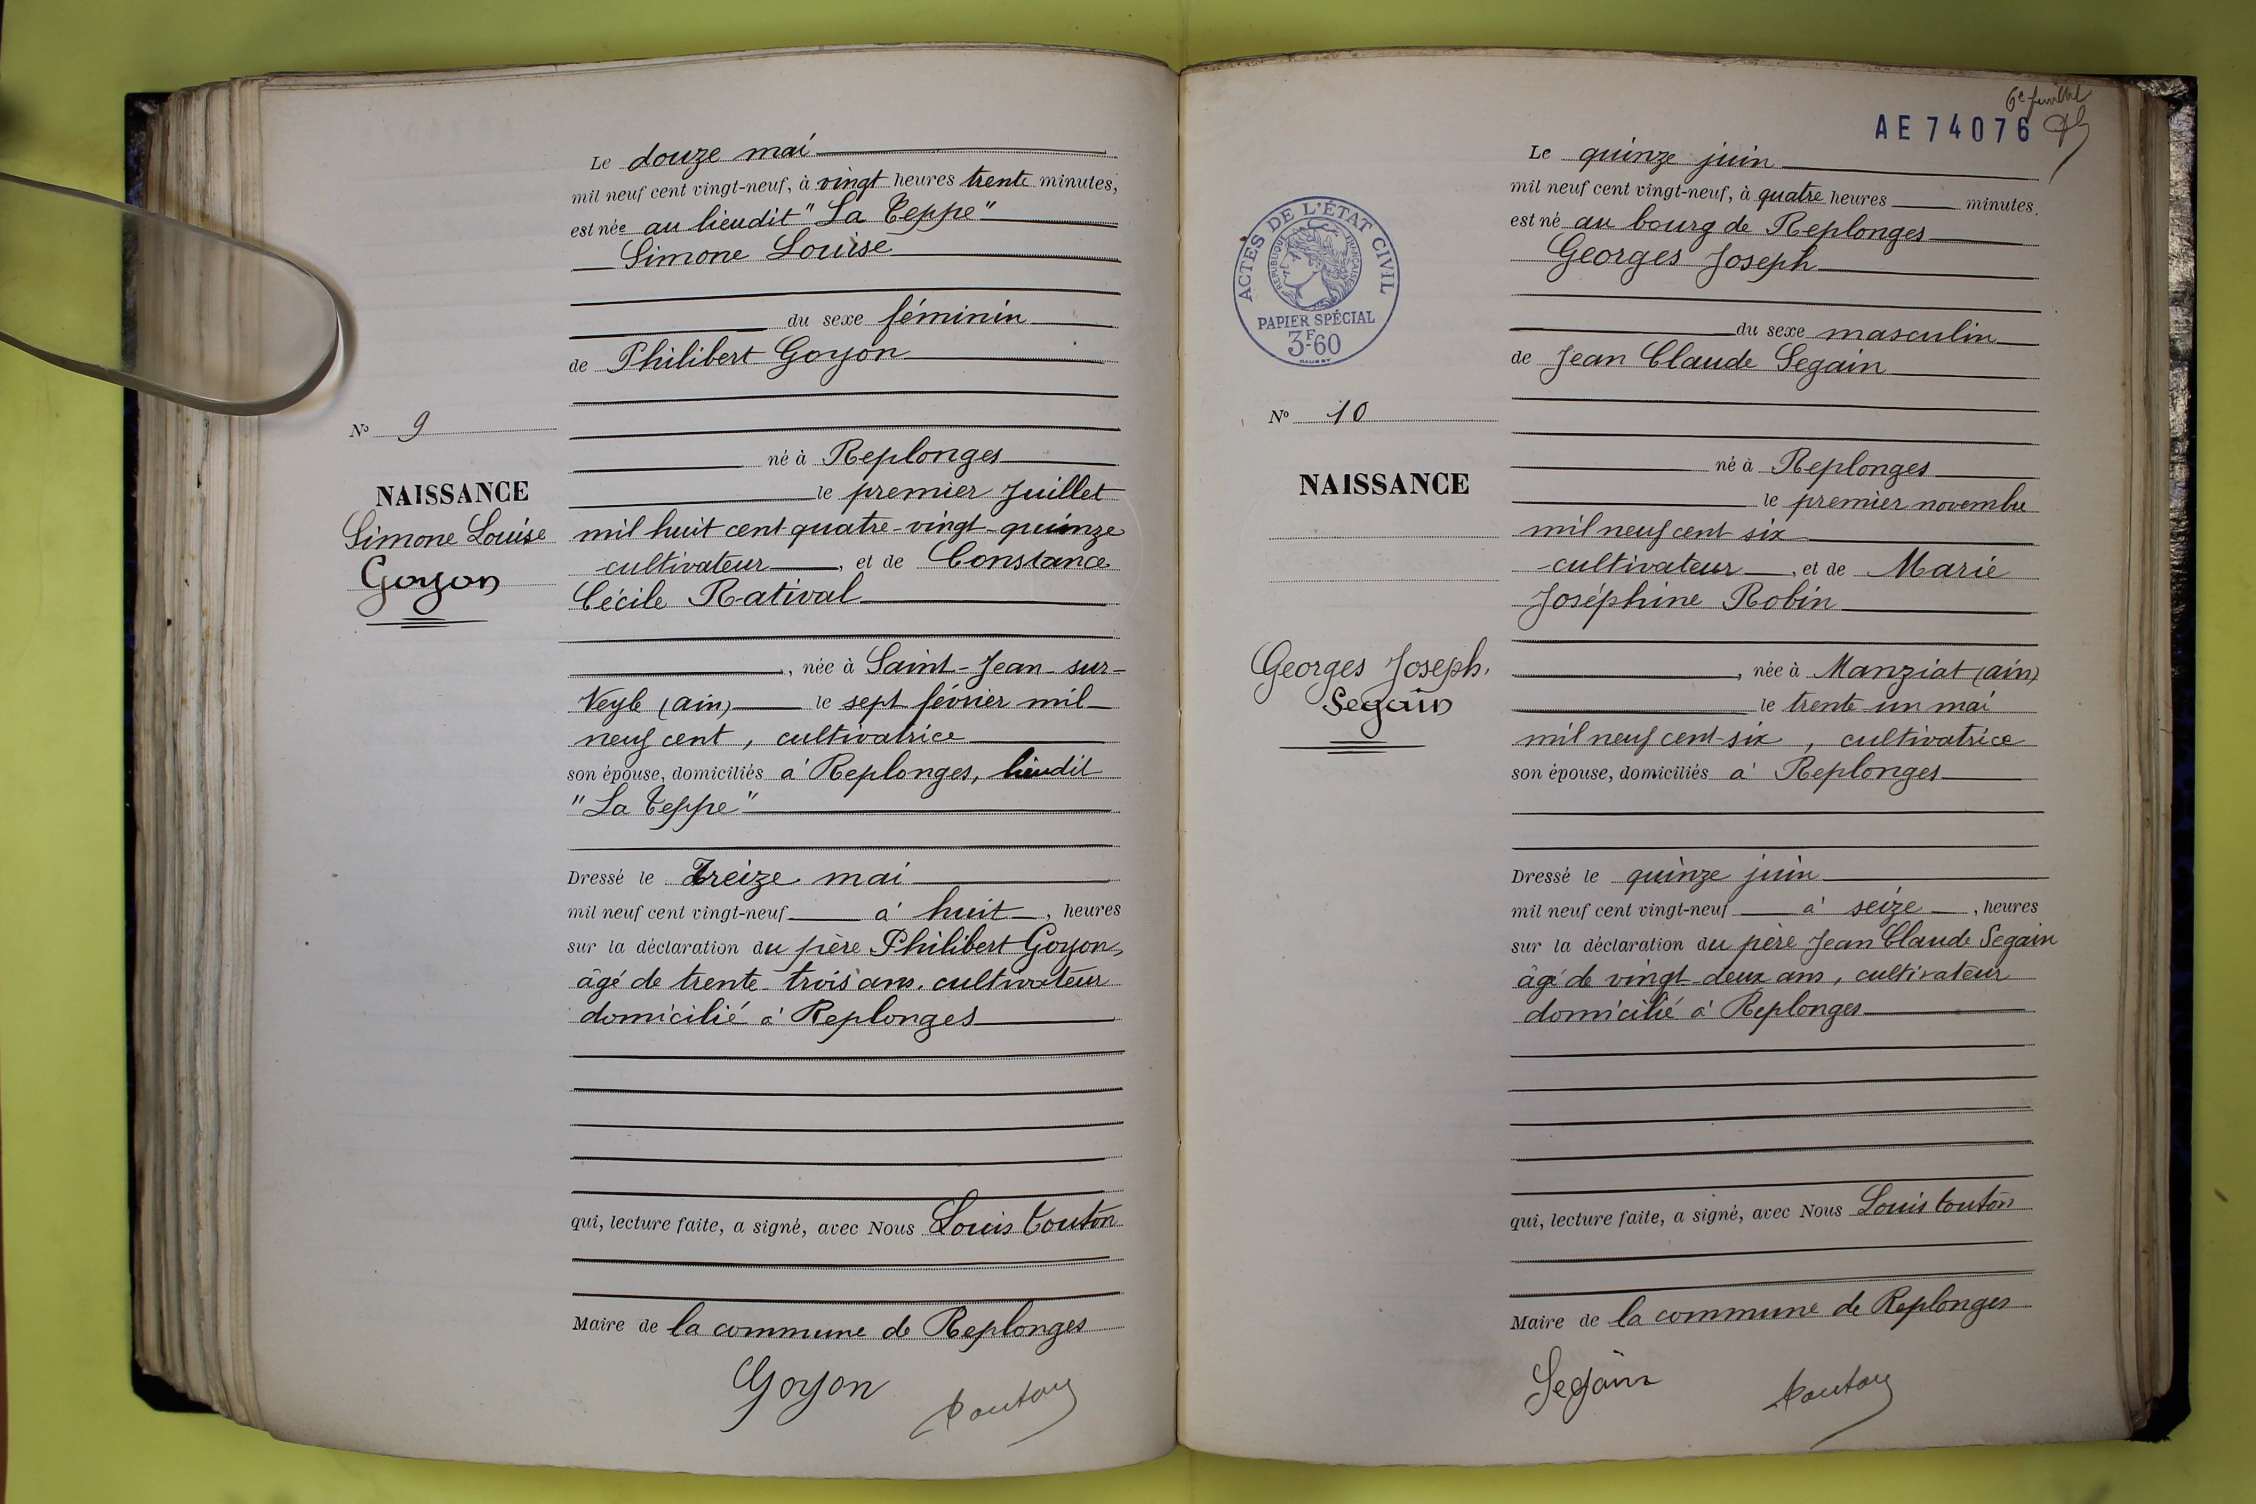 Le douze mai
mil neuf cent vingt-neuf, à vingt heures trente minutes,
est née au lieudit "La Teppe"
Simone Louise
du sexe féminin
de Philibert Goyon
né à Replonges
le premier Juillet
mil huit cent quatre-vingt-quinze
cultivateur, et de Constance
Cécile Ratival
, née à Saint-Jean-sur-
Veyle (ain) le sept février mil
neuf cent, cultivatrice
son épouse, domiciliés à Replonges, lieudit
"La Teppe"
Dressé le Treize mai
mil neuf cent vingt-neuf à huit, heures
sur la déclaration du père Philibert Goyon,
âgé de trente-trois ans, cultivateur
domicilié à Replonges
qui, lecture faite, a signé, avec Nous Louis Touton
Maire de la commune de Replonges
Goyon Touton
No 9
NAISSANCE
Simone Louise
Goyon
6e feuillet
AE74076
Le quinze juin
mil neuf cent vingt-neuf, à quatre heures minutes.
est né au bourg de Replonges
Georges Joseph
du sexe masculin
de Jean Claude Segain
né à Replonges
le premier novembre
mil neuf cent six
cultivateur, et de Marie
Joséphine Robin
, née à Manziat (ain)
le trente-un mai
mil neuf cent-six, cultivatrice
son épouse, domiciliés à Replonges
Dressé le quinze juin
mil neuf cent vingt-neuf à seize, heures
sur la déclaration du père Jean Claude Segain
âgé de vingt-deux ans, cultivateur
domicilié à Replonges
qui, lecture faite, a signé, avec Nous Louis Touton
Maire de la commune de Replonges
Segain Touton
ACTES DE L'ÉTAT CIVIL
RÉPUBLIQUE FRANÇAISE
PAPIER SPÉCIAL
3F60
No 10
NAISSANCE
Georges Joseph.
Segain